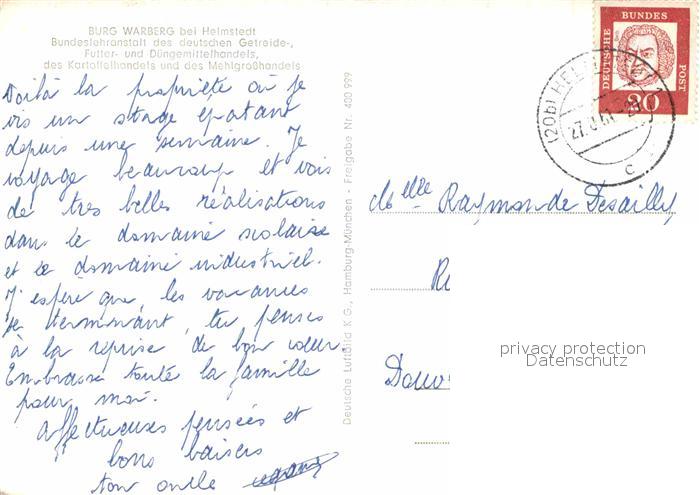 BURG WARBERG bei Helmstedt
Bundeslehranstalt des deutschen Getreide-,
Futter- und Düngemittelhandels,
des Kartoffelhandels und des Mehlgroßhandels
Voilà la propriété où je
vis un stage épatant
depuis une semaine. Je
voyage beaucoup et vois
de très belles réalisations
dans le domaine scolaire
et le domaine industriel.
J'espère que, les vacances
se terminant, tu penses
à la reprise de bon cœur.
Embrasse toute la famille
pour moi.
Affectueuses pensées et
bons baisers
ton oncle
Deutsche Luftbild K G., Hamburg-München - Freigabe Nr. 400 999
DEUTSCHE BUNDES POST
20
(20b) HELM
c
Melle Raymonde Desailly
privacy protection
Datenschutz